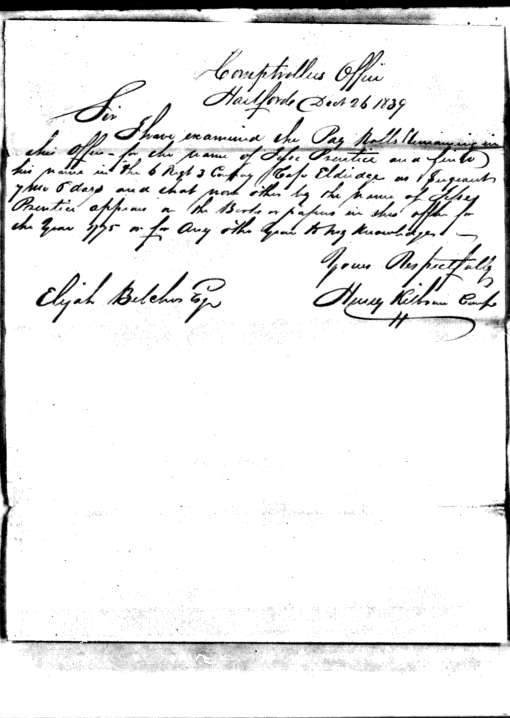 Comptrollers Office
Hartford Dect 26 1839
Sir
I have examined the Pay Rolls Remaining in
this office for the name of Jesse Prentice and find
his name in the 6 Regt 3 Compy Cap Eldridge as Sergeant
7 Mo 5 days and that none other by the name of Jesse
Prentice appears on the Books or papers in this office for
the Year 1775 or for Any other Year to my Knowledge
Yours Respectfully
Elijah Belcher Esqr
Henry Kilbourn Comp